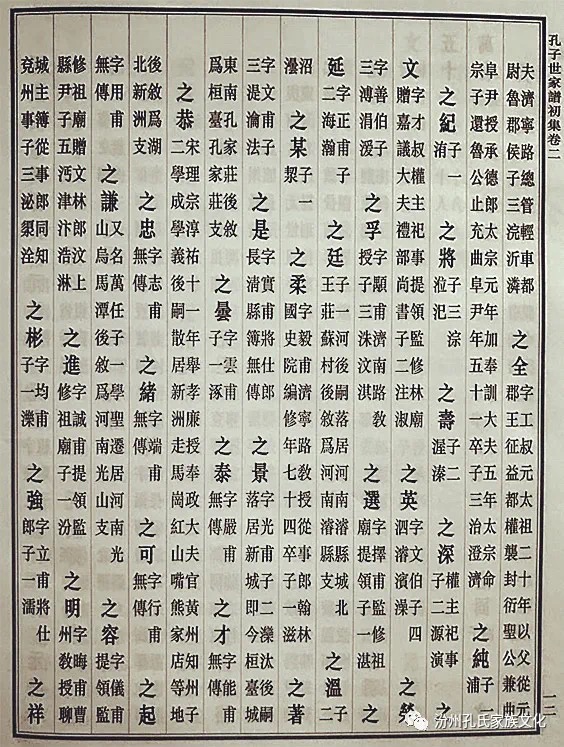 孔子世家譜初集卷二
夫濟寧路總管輕車都
尉魯郡侯子三浣沂
之全
字工叔元太祖二十年以父從元
郡王征益都權襲封衍聖公兼曲
阜尹授承德郎太宗元年加奉訓大夫五年太宗命
宗子還魯公止充曲阜尹年五十一卒子三治澄濟
之純
子一
浦
之紀
子一
洧
之將
子三淙
涖汜
之壽
子二
渥溱
之深
權主祀事
子二源演
文
字才叔權主祀事提領監修林廟
贈嘉議大夫禮部尚書子二注淑
之英
字文伯子四
泗濬澡
之熒
字善伯子
三溥涓湲
之孚
字顒甫濟南路教
授子三洙汶淇
之選
字擇甫監修祖
廟提領子一湛
之
延
字正甫子
二海瀚
之廷
子一河後嗣落居河南濬縣城北
王莊蘇村後敘爲河南濬縣支
之溫
子二
沼
之某
子一
洯
之柔
字毅甫濟寧路教授從事郎翰林
國史院編修年七十四卒子一滋
之著
字文甫子
三湜瀹法
之是
字實甫將仕郎
長清縣簿無傳
之景
字光甫子二濼汰後嗣
落居新城即今桓臺城
東南孔家莊後敘
爲桓臺孔家莊支
之曇
字雲甫
子一涿
之泰
字嚴甫
無傳
之才
字能甫
無傳
之恭
宋理宗淳祐十一年舉孝廉授奉政大夫官黃州知
二學成學義後嗣散居新洲走馬崗紅山嘴熊家店等地
後敘爲湖
北新洲支
之忠
字志甫
無傳
之緒
字端甫
無傳
之可
字行甫
無傳
之起
字用甫
無傳
之謙
又名萬任子一學聖遷居河南光
山烏馬潭後敘爲河南光山支
之容
字儀甫
提領監
修祖廟贈文林郎汶上
縣尹子五沔津汴浩淋
之進
字誠甫提領監
修祖廟子一汾
之明
字晦甫曹
州教授聊
城主簿從事郎同知
兗州事子三泌洤
之彬
字均甫
子一濼
之強
字立甫將仕
郎子一濡
之祥
一二
汾州孔氏家族文化